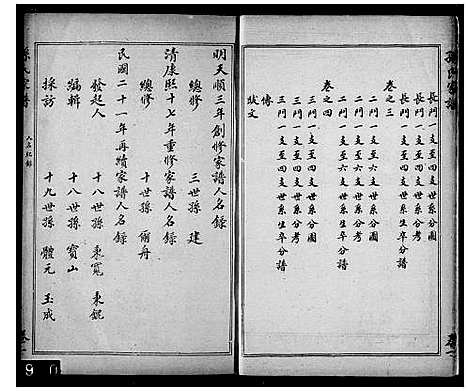 孫氏家譜
長門一支至四支世系分圖
長門一支至四支世系生卒分考
長門一支至四支世系生卒分譜
卷之三
二門一支至六支世系分圖
二門一支至六支世系生卒分考
二門一支至六支世系生卒分譜
卷之四
三門一支至四支世系分圖
三門一支至四支世系生卒分考
三門一支至四支世系生卒分譜
傳
狀文
卷一
明天順三年創修家譜人名錄
總修 三世孫 建
清康熙十七年重修家譜人名錄
總修 十世孫 爾舟
民國二十一年再續家譜人名錄
發起人 十八世孫 東寬 東錕
編輯 十八世孫 寶山
採訪 十九世孫 體元 玉成
孫氏家譜
人名記錄
卷
9 0